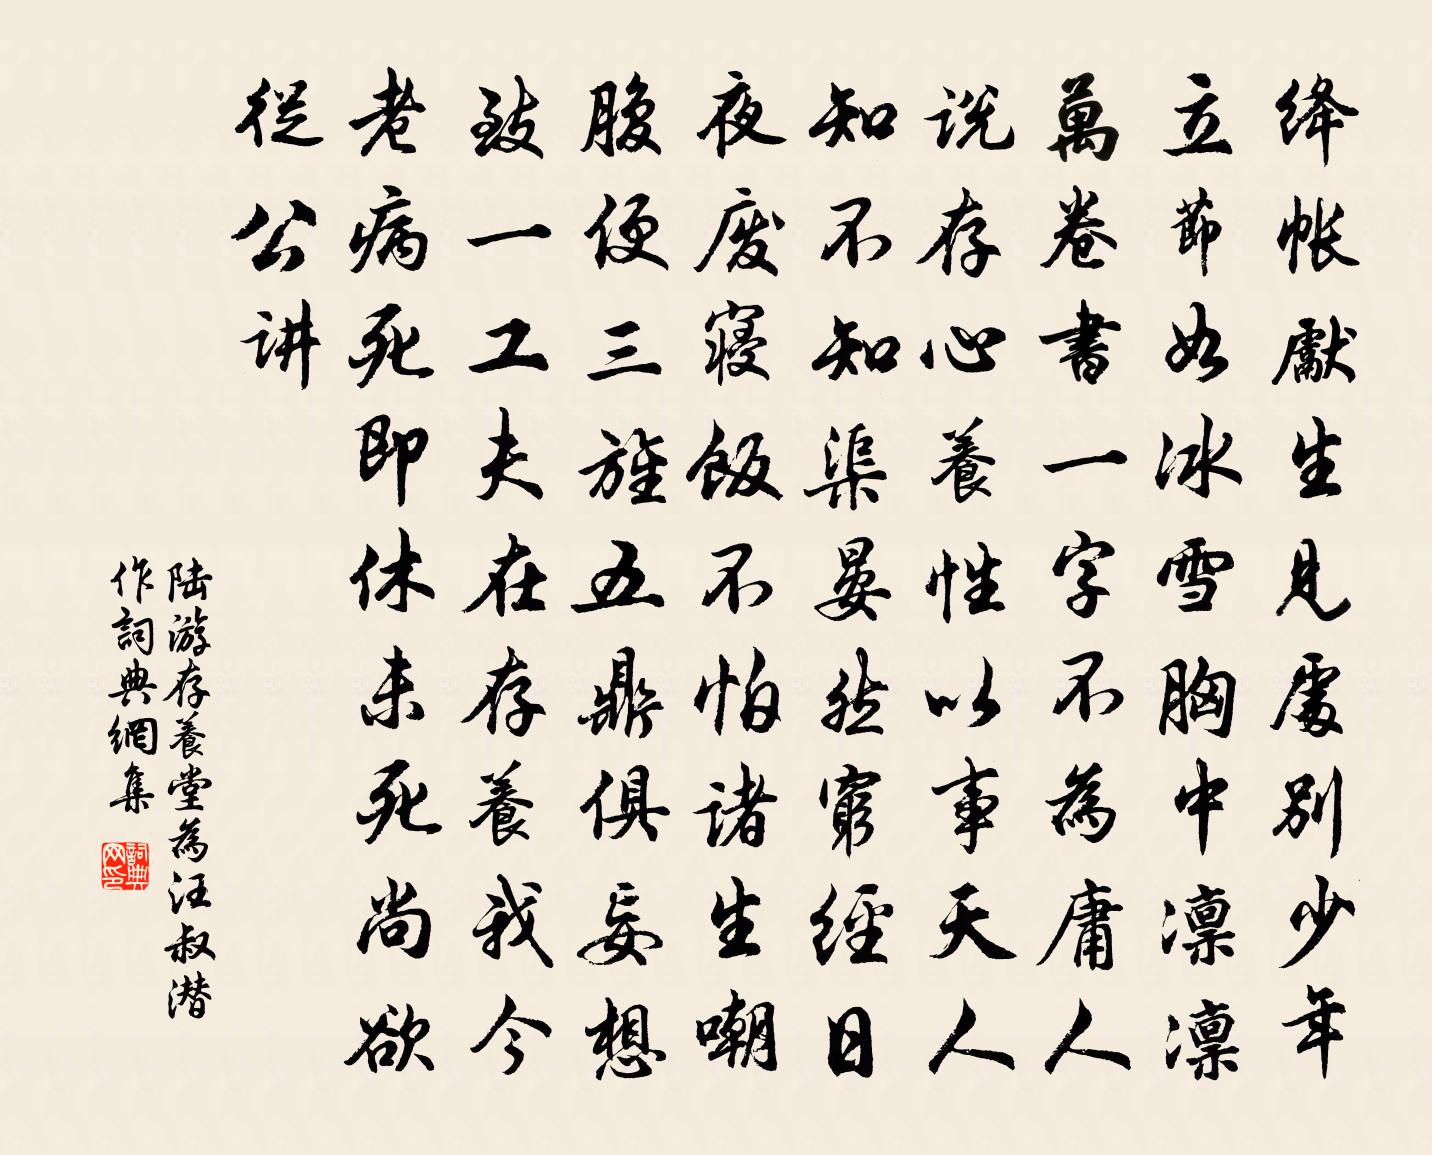 绛帐獻生見處别少年
立莭如冰雪胸中凛凛
萬卷書一字不為庸人
说存心養性以事天人
知不知渠晏然窮經日
夜废寝飯不怕诸生嘲
腹便三旌五鼎俱妄想
致一工夫在存養我今
老病死即休未死尚欲
從公讲
陆游存養堂為汪叔潜
作詞典網集
詞典网印